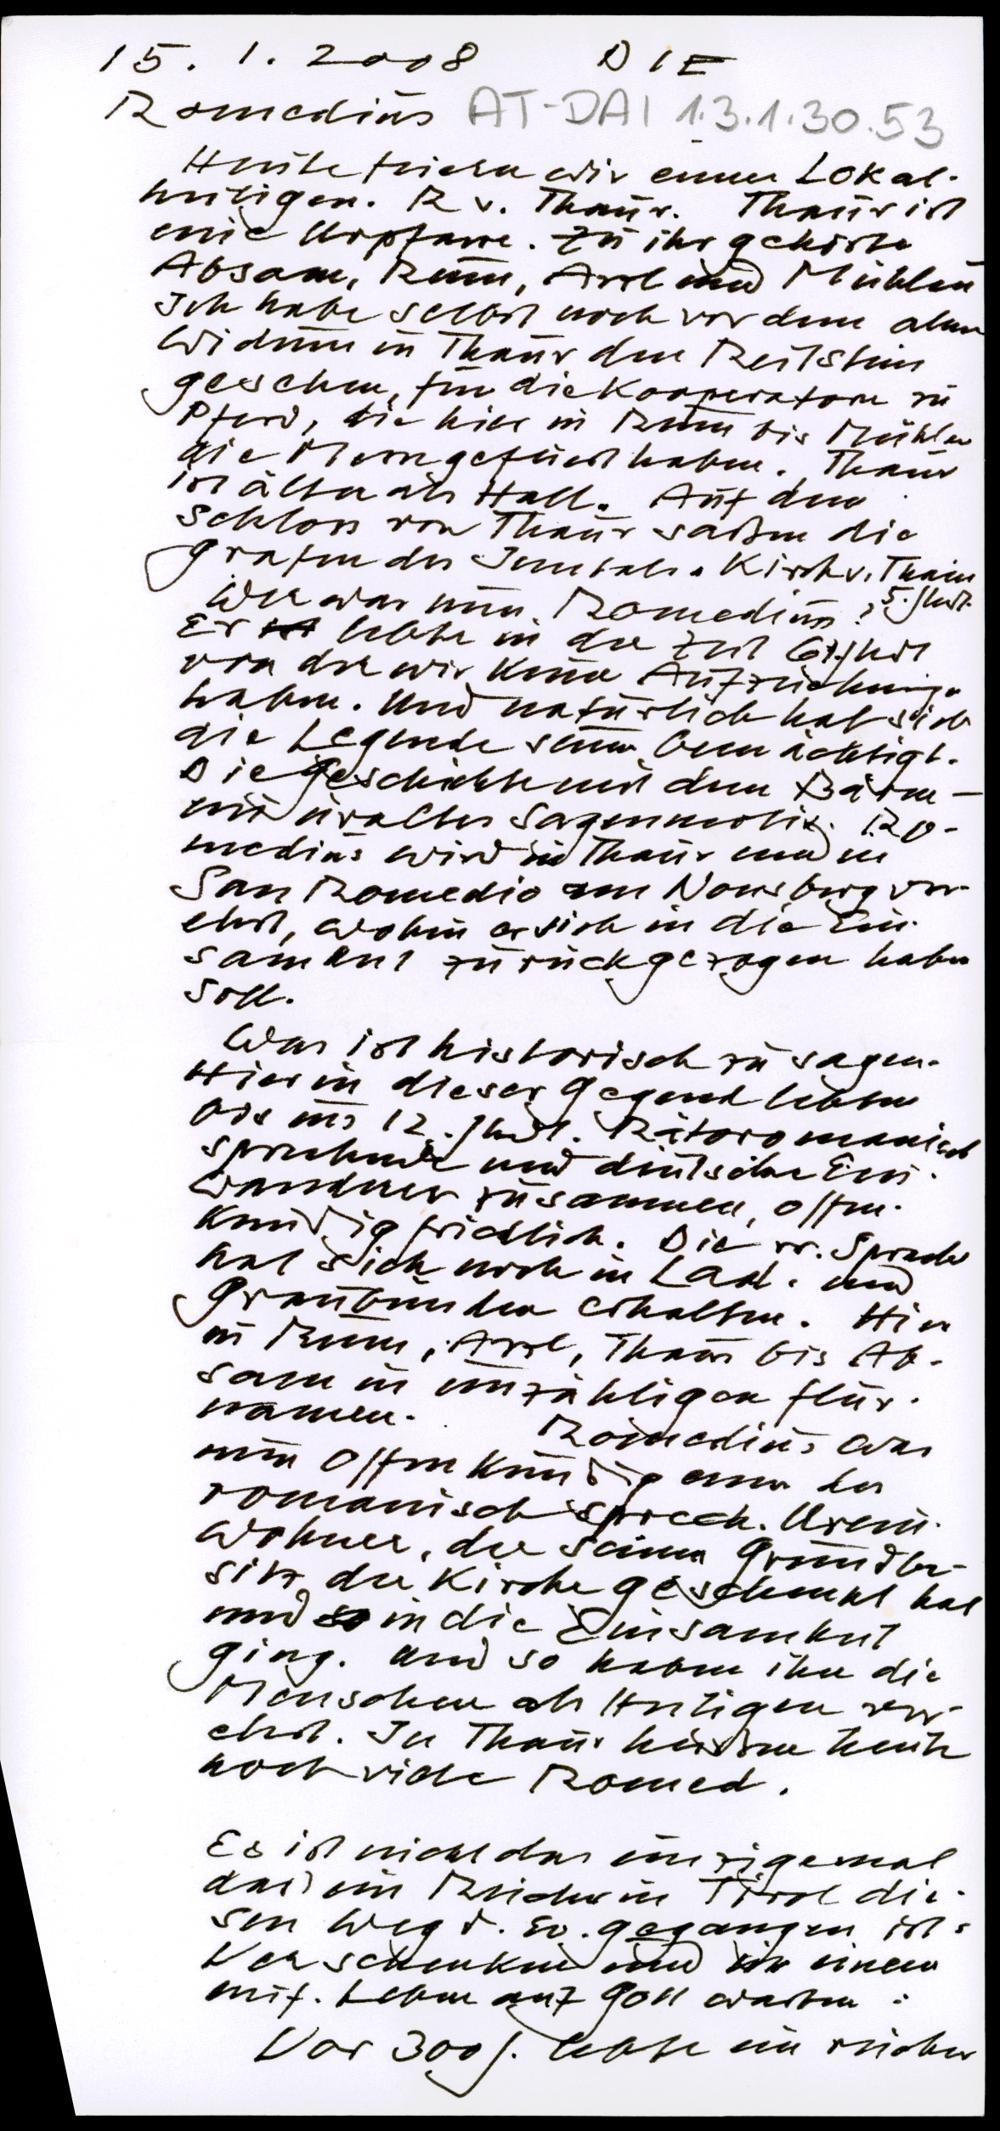 15. 1. 2008 DIE
Romedius AT-DAI 1.3.1.30.53
Heute feiern wir einen Lokal-
heiligen. R v. Thaur. Thaur ist
eine Urpfarre. Zu ihr gehörte
Absam, Rum, Arzl und Mühlau
Ich habe selbst noch vor dem alten
Widum in Thaur den Reitstein
gesehen, für die Kooperatoren zu
Pferd, die hier in Rum bis Mühlau
die Messn gefeiert haben. Thaur
ist älter als Hall. Auf dem
Schloss von Thaur saßen die
Grafen des Inntals. Kirch v. Thaur
5. Jhdt.
Wer war nun Romedius?
Er lebte in der Zeit 6. Jhdt
von der wir keine Aufzeichnunge
haben. Und natürlich hat sich
die Legende seiner bemächtigt.
Die Geschichte mit dem Bären -
ein uraltes Sagenmotiv. Ro-
medius wird in Thaur und in
San Romedio am Nonsberg ver-
ehrt, wohin er sich in die Ein-
samkeit zurückgezogen haben
soll.
Was ist historisch zu sagen.
Hier in dieser Gegend lebten
bis ins 12. Jhdt. Rätoromanisch
sprechende und deutsche Ein-
wanderer zusammen, offen-
kundig friedlich. Die rr. Sprache
hat sich noch in Lad. und
Graubünden erhalten. Hier
in Rum, Arzl, Thaur bis Ab-
sam in unzähligen Flur-
namen. Romedius war
nun offenkundig einer der
romanisch sprech. Urein-
wohner, der seinen Grundbe-
sitz der Kirche geschenkt hat
und in die Einsamkeit
ging. Und so haben ihn die
Menschen als Heiligen ver-
ehrt. In Thaur heißen heute
noch viele Romed.
Es ist nicht das einzigemal
dass ein Reicher in Tirol die-
sen Weg d. Ev. gegangen ist:
Verschenken und in einem
einf. Leben auf Gott warten:
Vor 300 J. lebte ein reicher